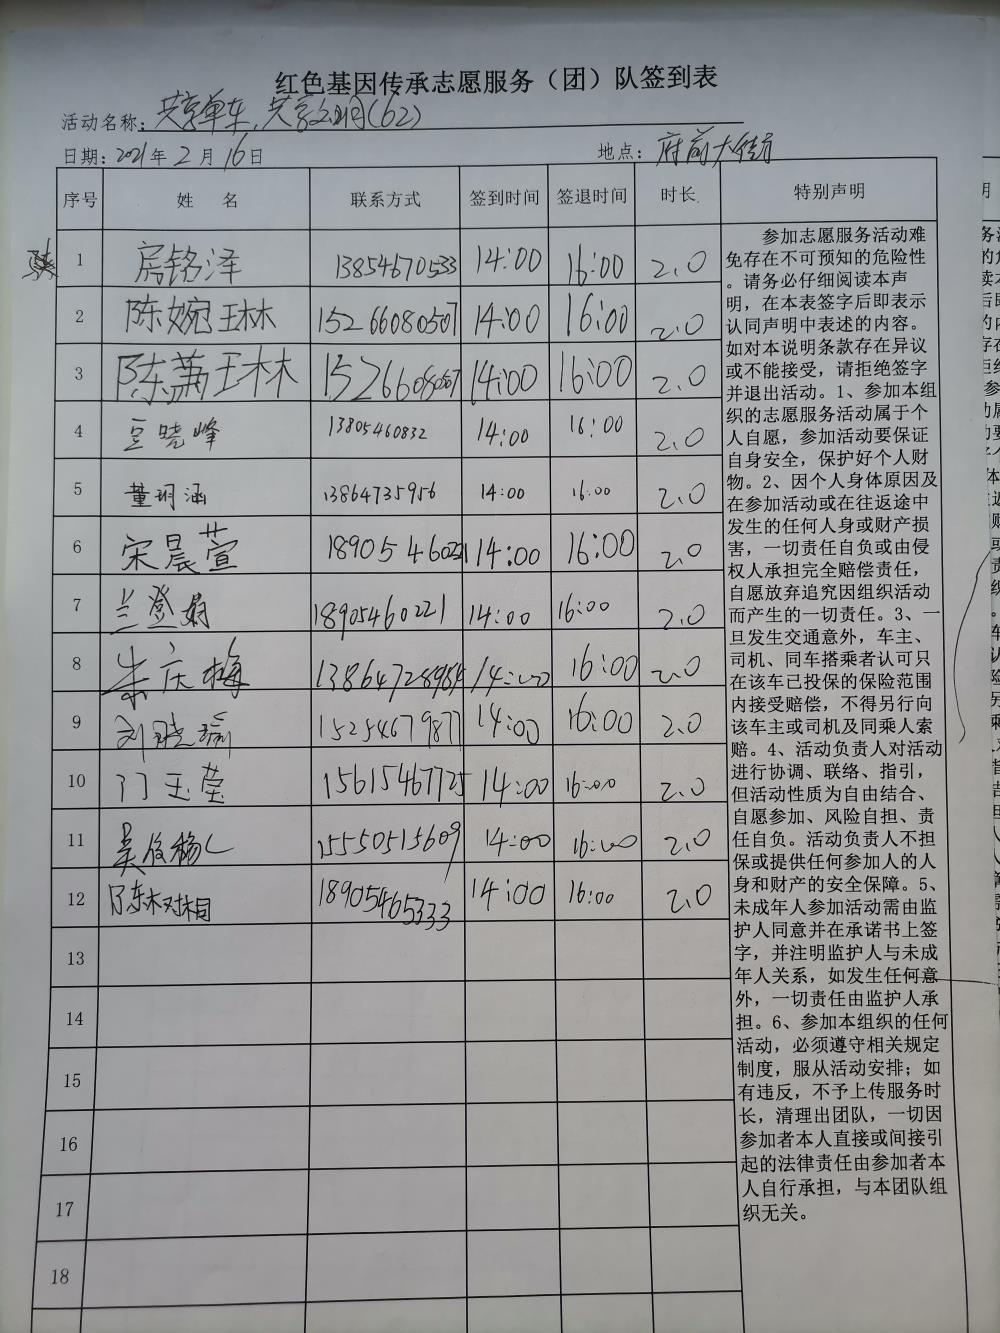 红色基因传承志愿服务（团）队签到表
活动名称：共享单车，共享文明（62）
日期：2021年2月16日 地点：府前大街
序号 姓 名 联系方式 签到时间 签退时间 时长 特别声明
1 房铭泽 13854670533 14:00 16:00 2.0
2 陈婉琳 15266080507 14:00 16:00 2.0
3 陈萧琳 15266080507 14:00 16:00 2.0
4 豆晓峰 13805460832 14:00 16:00 2.0
5 董玥涵 13864735956 14:00 16:00 2.0
6 宋晨萱 18905460221 14:00 16:00 2.0
7 兰登娟 18905460221 14:00 16:00 2.0
8 朱庆梅 13864728984 14:00 16:00 2.0
9 刘晓瑜 15254679877 14:00 16:00 2.0
10 门玉莹 15615467725 14:00 16:00 2.0
11 15550515609 14:00 16:00 2.0
12 陈树相 18905465333 14:00 16:00 2.0
13
14
15
16
17
18
参加志愿服务活动难
免存在不可预知的危险性
。请务必仔细阅读本声
明，在本表签字后即表示
认同声明中表述的内容。
如对本说明条款存在异议
或不能接受，请拒绝签字
并退出活动。1、参加本组
织的志愿服务活动属于个
人自愿，参加活动要保证
自身安全，保护好个人财
物。2、因个人身体原因及
在参加活动或在往返途中
发生的任何人身或财产损
害，一切责任自负或由侵
权人承担完全赔偿责任，
自愿放弃追究因组织活动
而产生的一切责任。3、一
旦发生交通意外，车主、
司机、同车搭乘者认可只
在该车已投保的保险范围
内接受赔偿，不得另行向
该车主或司机及同乘人索
赔。4、活动负责人对活动
进行协调、联络、指引，
但活动性质为自由结合、
自愿参加、风险自担、责
任自负。活动负责人不担
保或提供任何参加人的人
身和财产的安全保障。5、
未成年人参加活动需由监
护人同意并在承诺书上签
字，并注明监护人与未成
年人关系，如发生任何意
外，一切责任由监护人承
担。6、参加本组织的任何
活动，必须遵守相关规定
制度，服从活动安排；如
有违反，不予上传服务时
长，清理出团队，一切因
参加者本人直接或间接引
起的法律责任由参加者本
人自行承担，与本团队组
织无关。